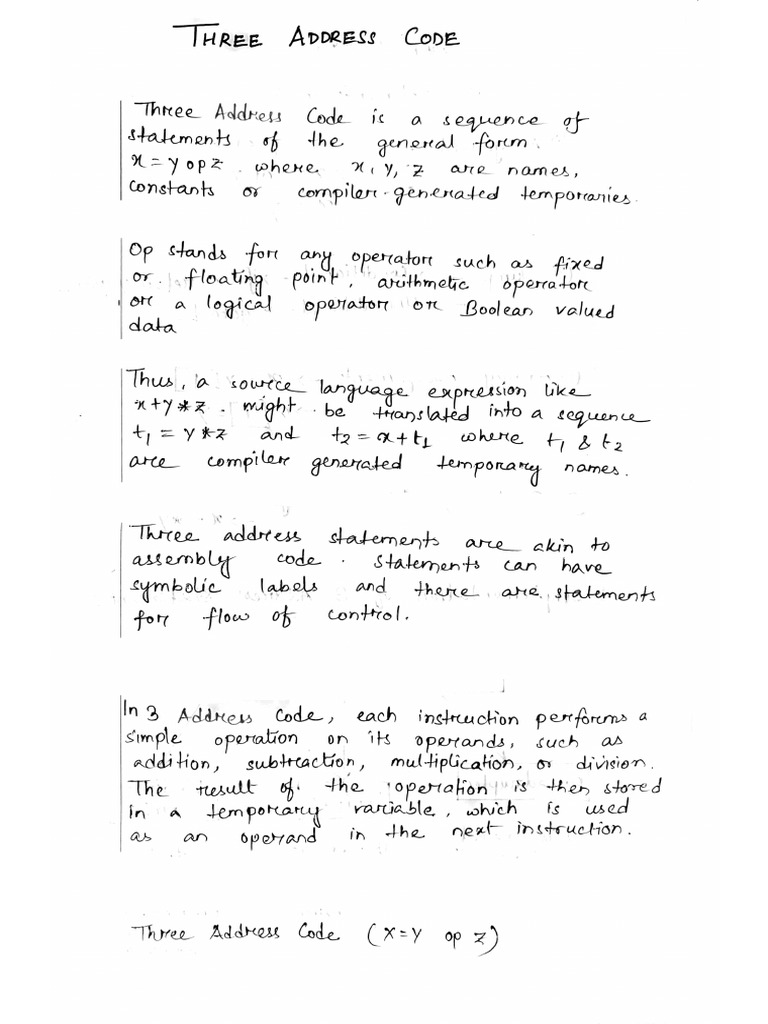 THREE ADDRESS CODE
Three Address Code is a sequence of
statements of the general form.
x = y op z where x, y, z are names,
constants or compiler-generated temporaries.
Op stands for any operator such as fixed
or floating point, arithmetic operator
or a logical operator on Boolean valued
data
Thus, a source language expression like
x+y*z. might be translated into a sequence
t1 = y*z and t2 = x+t1 where t1 & t2
are compiler generated temporary names.
Three address statements are akin to
assembly code. statements can have
symbolic labels and there are statements
for flow of control.
In 3 Address Code, each instruction performs a
simple operation on its operands, such as
addition, subtraction, multiplication, or division.
The result of the operation is then stored
in a temporary variable, which is used
as an operand in the next instruction.
Three Address Code (x=y op z)